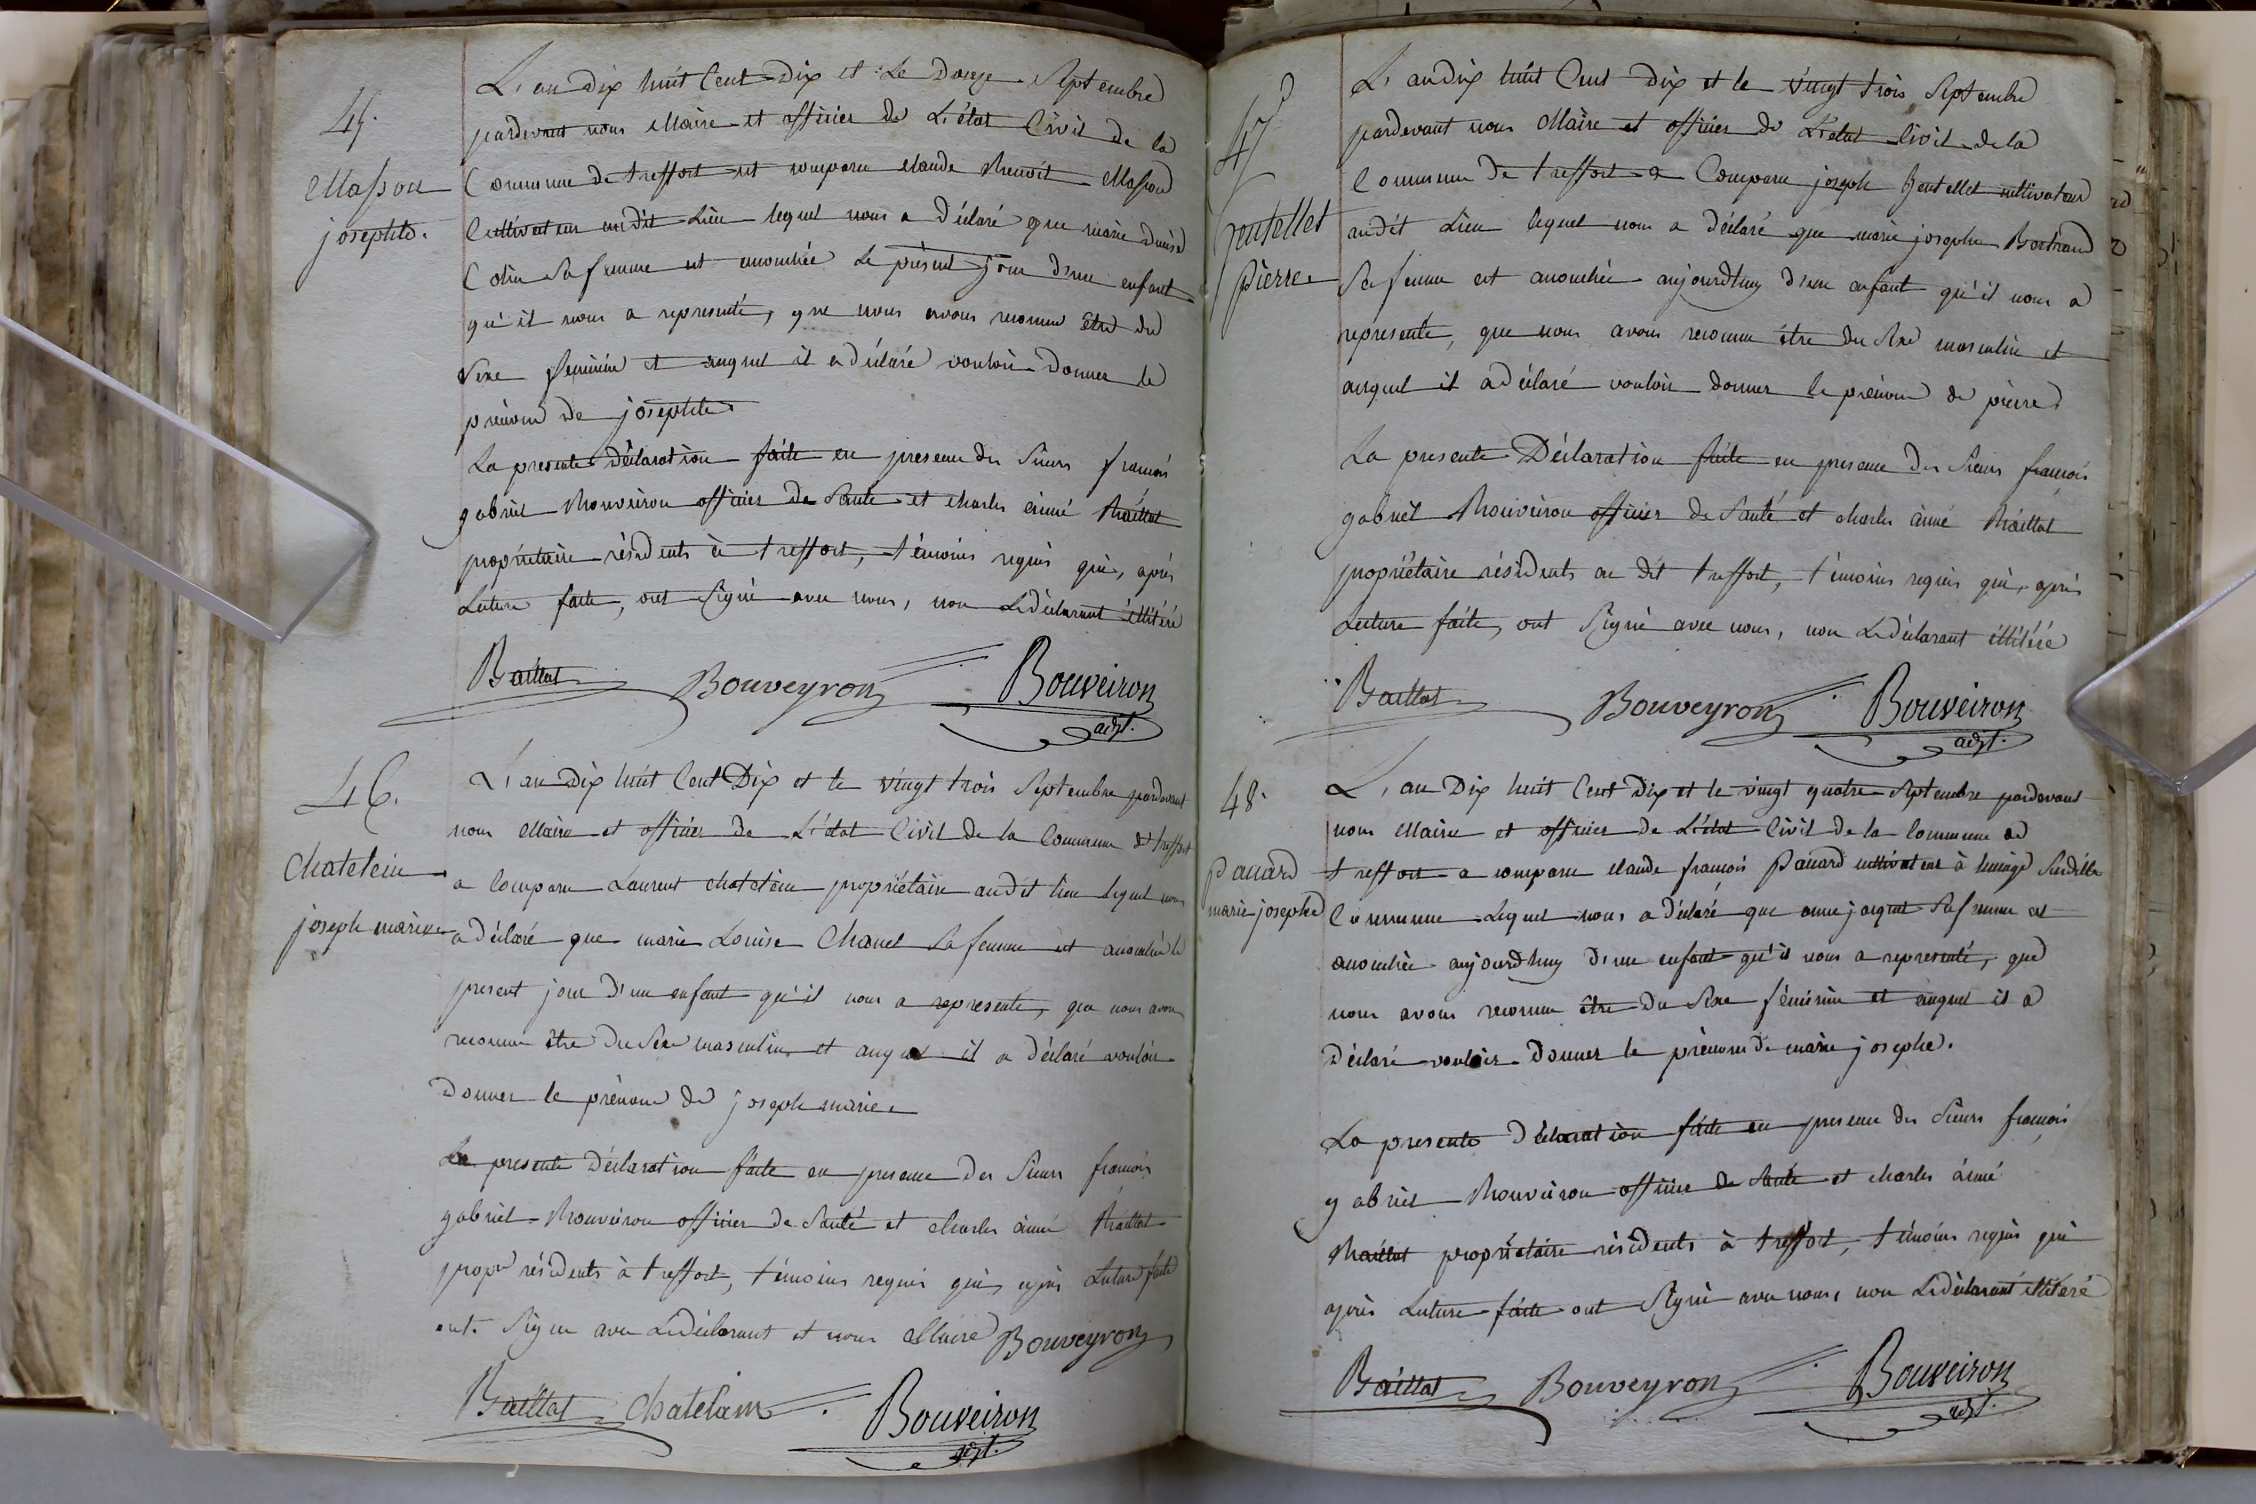 45.
Masson
josephte.
L'an Dix huit Cent Dix et Le Douze Septembre
pardevant nous Maire et officier de L'état Civil de la
Commune de treffort est comparu claude Benoit Masson
Cultivateur au dit Lieu lequel nous a déclaré que marie
Cotin Sa femme est accouchée Le présent Jour d'un enfant
qu'il nous a representé, que nous avons reconnu être du
Sexe feminin et auquel il a déclaré vouloir Donner le
prénom de josephte
La presente Déclaration faite en presence des Sieurs francois
gabriel Bouveiron officier de Santé et charles aimé Baillat
propriétaire résidents à treffort, témoins requis qui, après
Lecture faite, ont Signé avec nous, non Le déclarant illitéré
Baillat Bouveyron Bouveiron
adjt.
46.
Chatelein
joseph marie
L'an Dix huit Cent Dix et le vingt trois Septembre pardevant
nous Maire et officier de L'état Civil de la Commune de treffort
a comparu Laurent chatelein propriétaire au dit lieu lequel nous
a déclaré que marie Louise Chanel Sa femme est accouchée le
present jour d'un enfant qu'il nous a representé, que nous avons
reconnu être du Sexe masculin et auquel il a déclaré vouloir
Donner le prénom de joseph marie
La presente Déclaration faite en presence des Sieurs francois
gabriel Bouveiron officier de Santé et charles aimé Baillat
propre résidents à treffort, témoins requis qui, après Lecture faite
ont Signé avec Le déclarant et nous Maire Bouveyron
Baillat Chatelain Bouveiron
adjt.
47
pierre
L'an Dix huit Cent Dix et le vingt trois Septembre
pardevant nous Maire et officier de L'état Civil de la
Commune de treffort a Comparu joseph cultivateur
au dit Lieu lequel nous a déclaré que marie josephe Bertrand
Sa femme est accouchée aujourdhuy d'un enfant qu'il nous a
representé, que nous avons reconnu être du Sexe masculin et
auquel il a déclaré vouloir donner le prénom de pierre
La presente Déclaration faite en presence des Sieurs francois
gabriel Bouveiron officier de Santé et charles aimé Baillat
propriétaire résidents au dit treffort, témoins requis qui, après
Lecture faite, ont Signé avec nous, non Le déclarant illitéré
Baillat Bouveyron Bouveiron
adjt.
48.
Panard
marie josephe
L'an Dix huit Cent Dix et le vingt quatre Septembre pardevant
nous Maire et officier de L'état Civil de la Commune de
treffort a comparu claude francois Panard cultivateur à
Commune Lequel nous a déclaré que anne jacquet Sa femme est
accouchée aujourdhuy d'un enfant qu'il nous a representé, que
nous avons reconnu être du Sexe féminin et auquel il a
Déclaré vouloir Donner le prénom de marie josephe.
La presente Déclaration faite en presence des Sieurs francois
gabriel Bouveiron officier de Santé et charles aimé
Baillat propriétaire résidents à treffort, témoins requis qui
après Lecture faite ont Signé avec nous, non Le déclarant illitéré
Baillat Bouveyron Bouveiron
adjt.